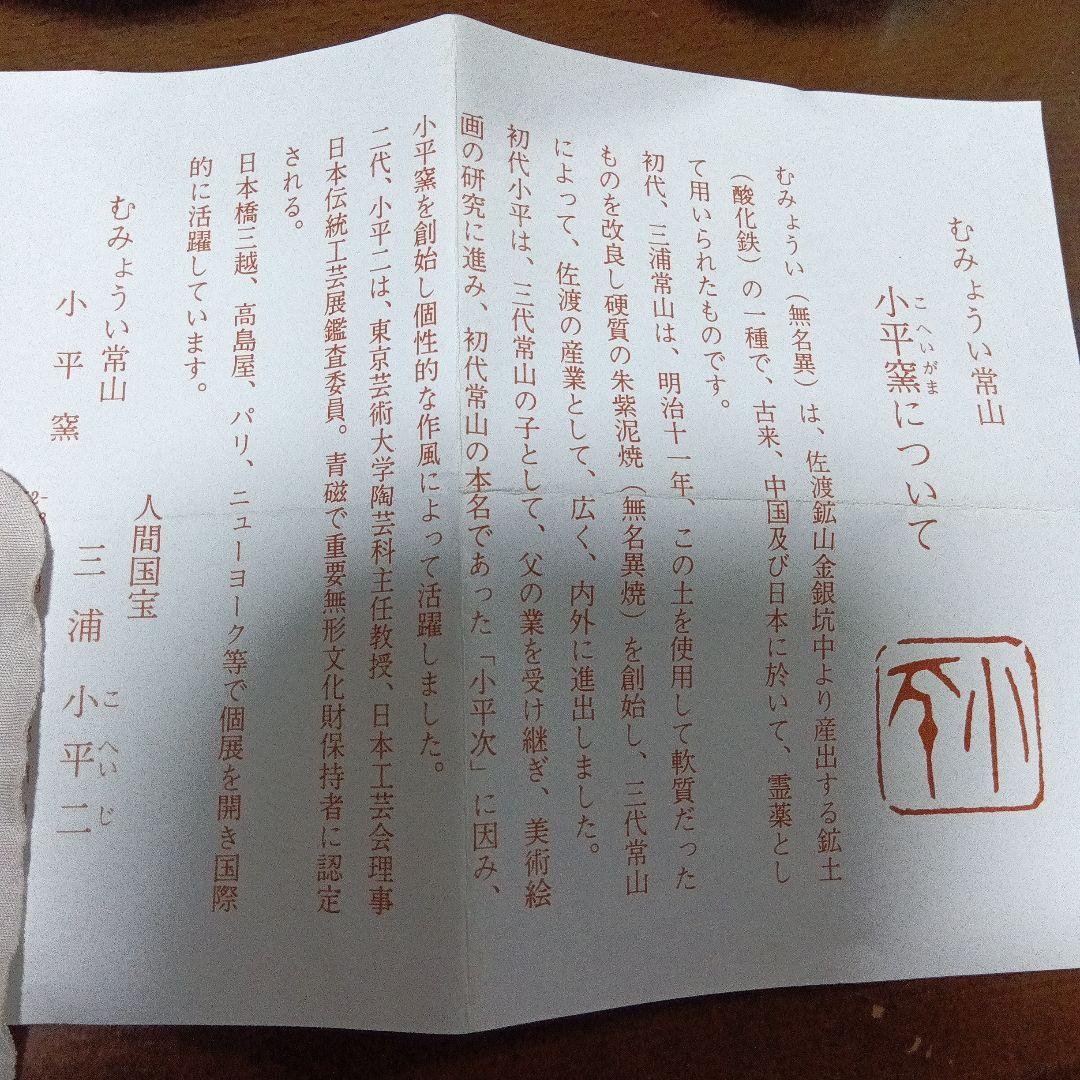 むみょうい常山
小平窯について
こへいがま
小平
むみょうい（無名異）は、佐渡鉱山金銀坑中より産出する鉱土
（酸化鉄）の一種で、古来、中国及び日本に於いて、霊薬とし
て用いられたものです。
初代、三浦常山は、明治十一年、この土を使用して軟質だった
ものを改良し硬質の朱紫泥焼（無名異焼）を創始し、三代常山
によって、佐渡の産業として、広く、内外に進出しました。
初代小平は、三代常山の子として、父の業を受け継ぎ、美術絵
画の研究に進み、初代常山の本名であった「小平次」に因み、
小平窯を創始し個性的な作風によって活躍しました。
二代、小平二は、東京芸術大学陶芸科主任教授、日本工芸会理事
日本伝統工芸展鑑査委員。青磁で重要無形文化財保持者に認定
される。
日本橋三越、高島屋、パリ、ニューヨーク等で個展を開き国際
的に活躍しています。
むみょうい常山
小平窯
人間国宝
三浦小平二
こへいじ